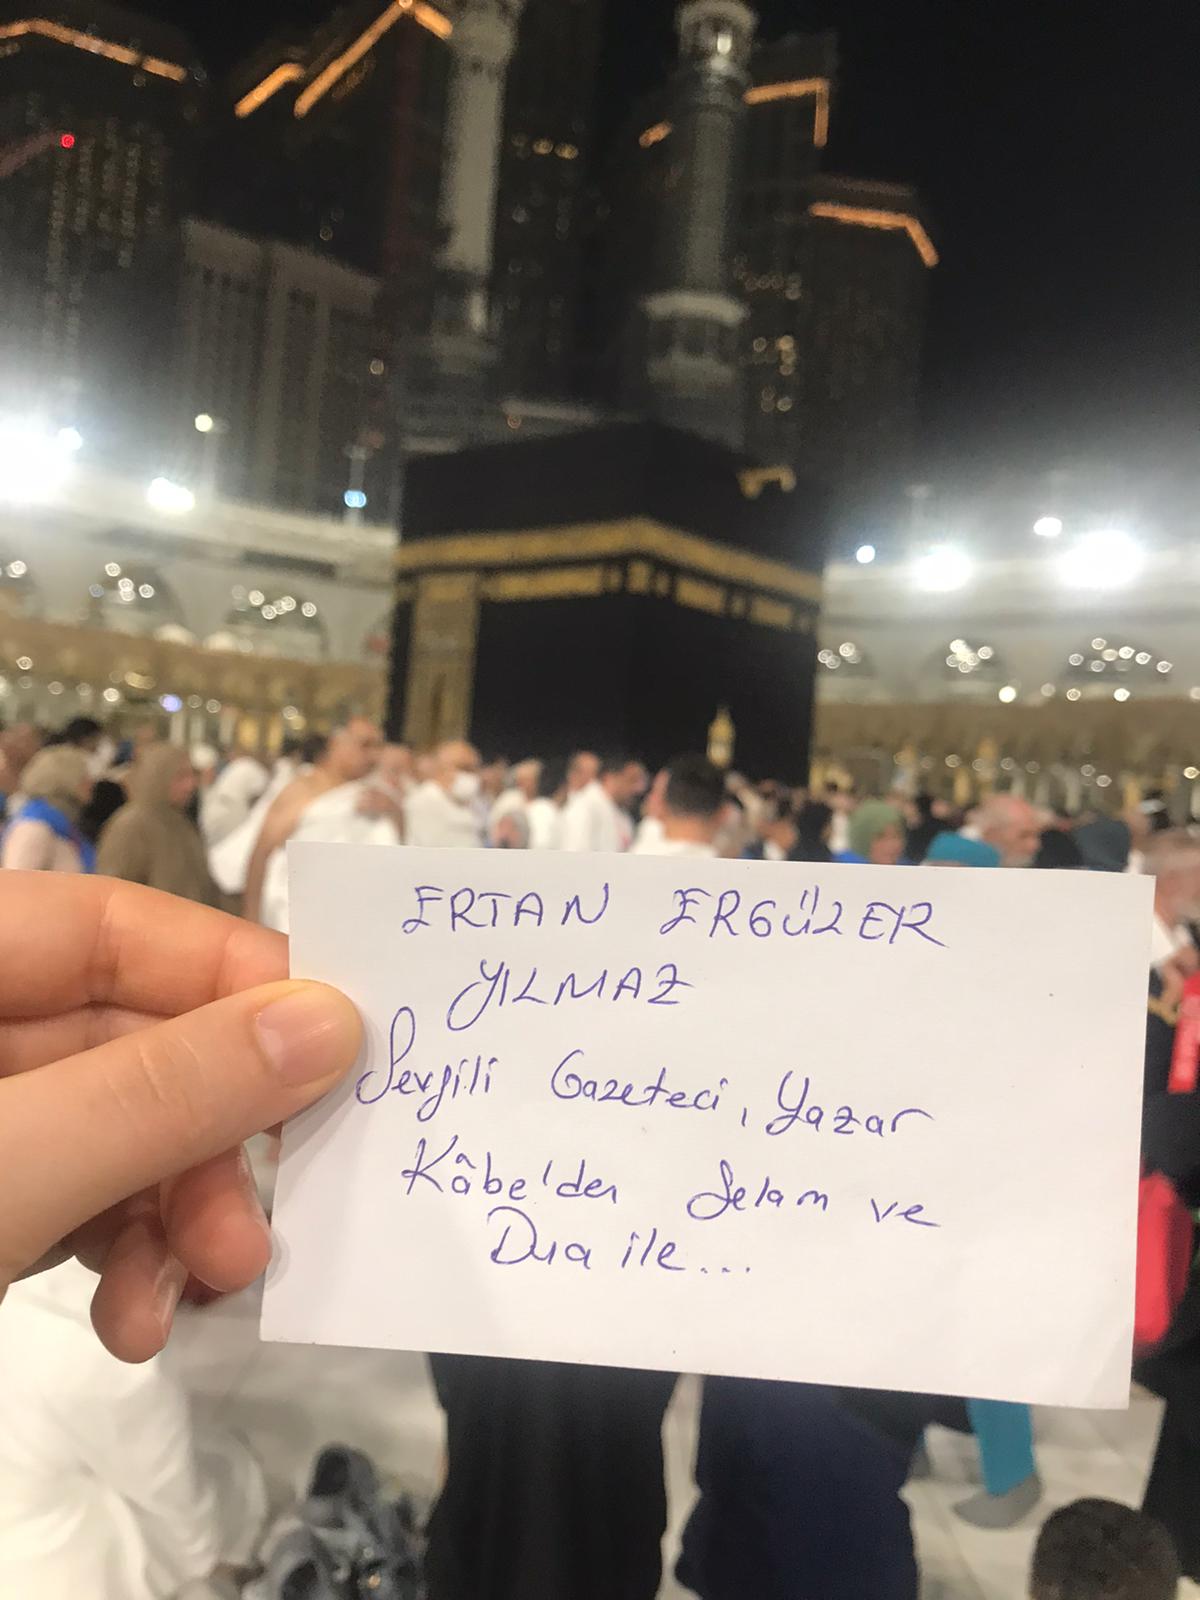 ERTAN ERGÜLER
YILMAZ
Sevgili Gazeteci, Yazar
Kâbe'den Selam ve
Dua ile...